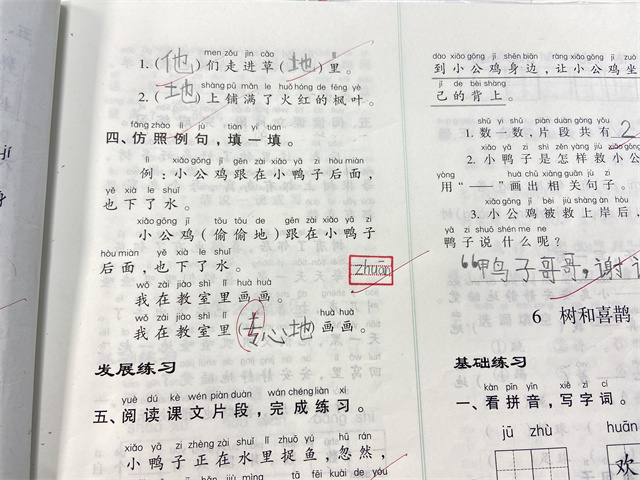 men zǒu jìn cǎo lǐ
1.(他)们走进草(地)里。
shàng pū mǎn le huǒ hóng de fēng yè
2.(地)上铺满了火红的枫叶。
fǎng zhào lì jù tián yi tián
四、仿照例句,填一填。
lì xiǎo gōng jī gēn zài xiǎo yā zi hòu miàn
例:小公鸡跟在小鸭子后面,
yě xià le shuǐ
也下了水。
xiǎo gōng jī tōu tōu de gēn zài xiǎo yā zi
小公鸡(偷偷地)跟在小鸭子
hòu miàn yě xià le shuǐ
后面,也下了水。
zhuān
wǒ zài jiào shì lǐ huà huà
我在教室里画画。
wǒ zài jiào shì lǐ huà huà
我在教室里(专心地)画画。
发展练习
yuè dú kè wén piàn duàn wán chéng liàn xí
五、阅读课文片段,完成练习。
xiǎo yā zi zhèng zài shuǐ lǐ zhuō yú hū rán
小鸭子正在水里捉鱼,忽然,
tā fēi kuài de yóu
dào xiǎo gōng jī shēn biān ràng xiǎo gōng jī zuò
到小公鸡身边,让小公鸡坐
jǐ de bèi shàng
己的背上。
shǔ yi shǔ piàn duàn gòng yǒu
1. 数一数,片段共有 2
xiǎo yā zi shì zěn yàng jiù xiǎo gōng
2. 小鸭子是怎样救小公
yòng huà chū xiāng guān jù zi
用“——”画出相关句子。
xiǎo gōng jī bèi jiù shàng àn hòu
3. 小公鸡被救上岸后,
yā zi shuō shén me ne
鸭子说什么呢?
“鸭子哥哥,谢
6 树和喜鹊
基础练习
kàn pīn yīn xiě zì cí
一、看拼音,写字词。
jū zhù huān
欢